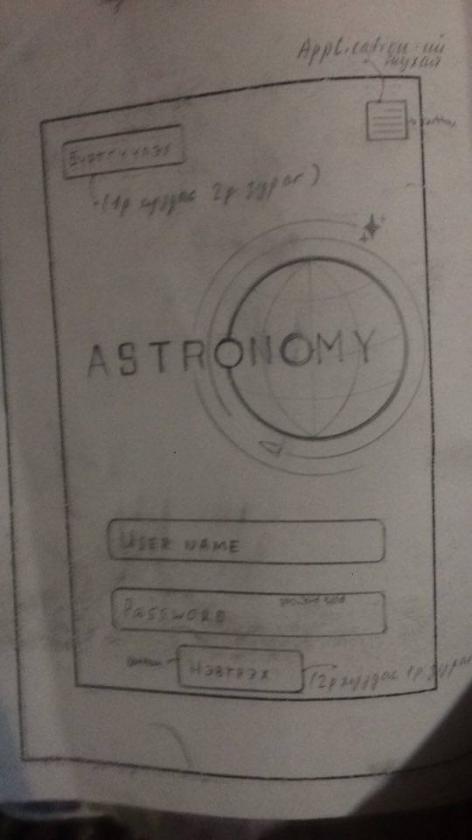 Application-ий
тухай
Бүртгүүлэх
(1р хуудас 2р зураг)
ASTRONOMY
USER NAME
PASSWORD
НЭВТРЭХ
(2р хуудас 1р зураг